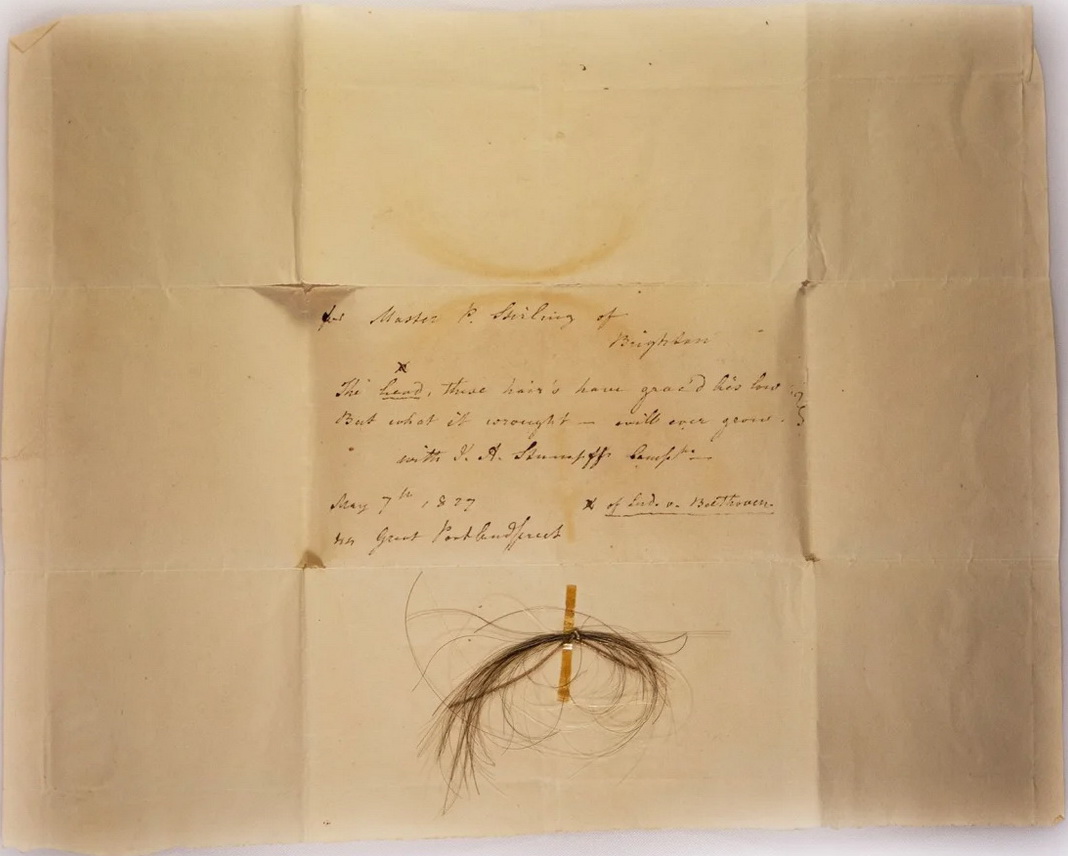 for Master P. Stirling of
Brighton
x
The head, these hair's have grac'd lies low
But what it wrought — will ever grow.
with J. A. Stumpff's Compt.
May 7th, 1827
x of Lud. v. Beethoven.
Great Portlandstreet